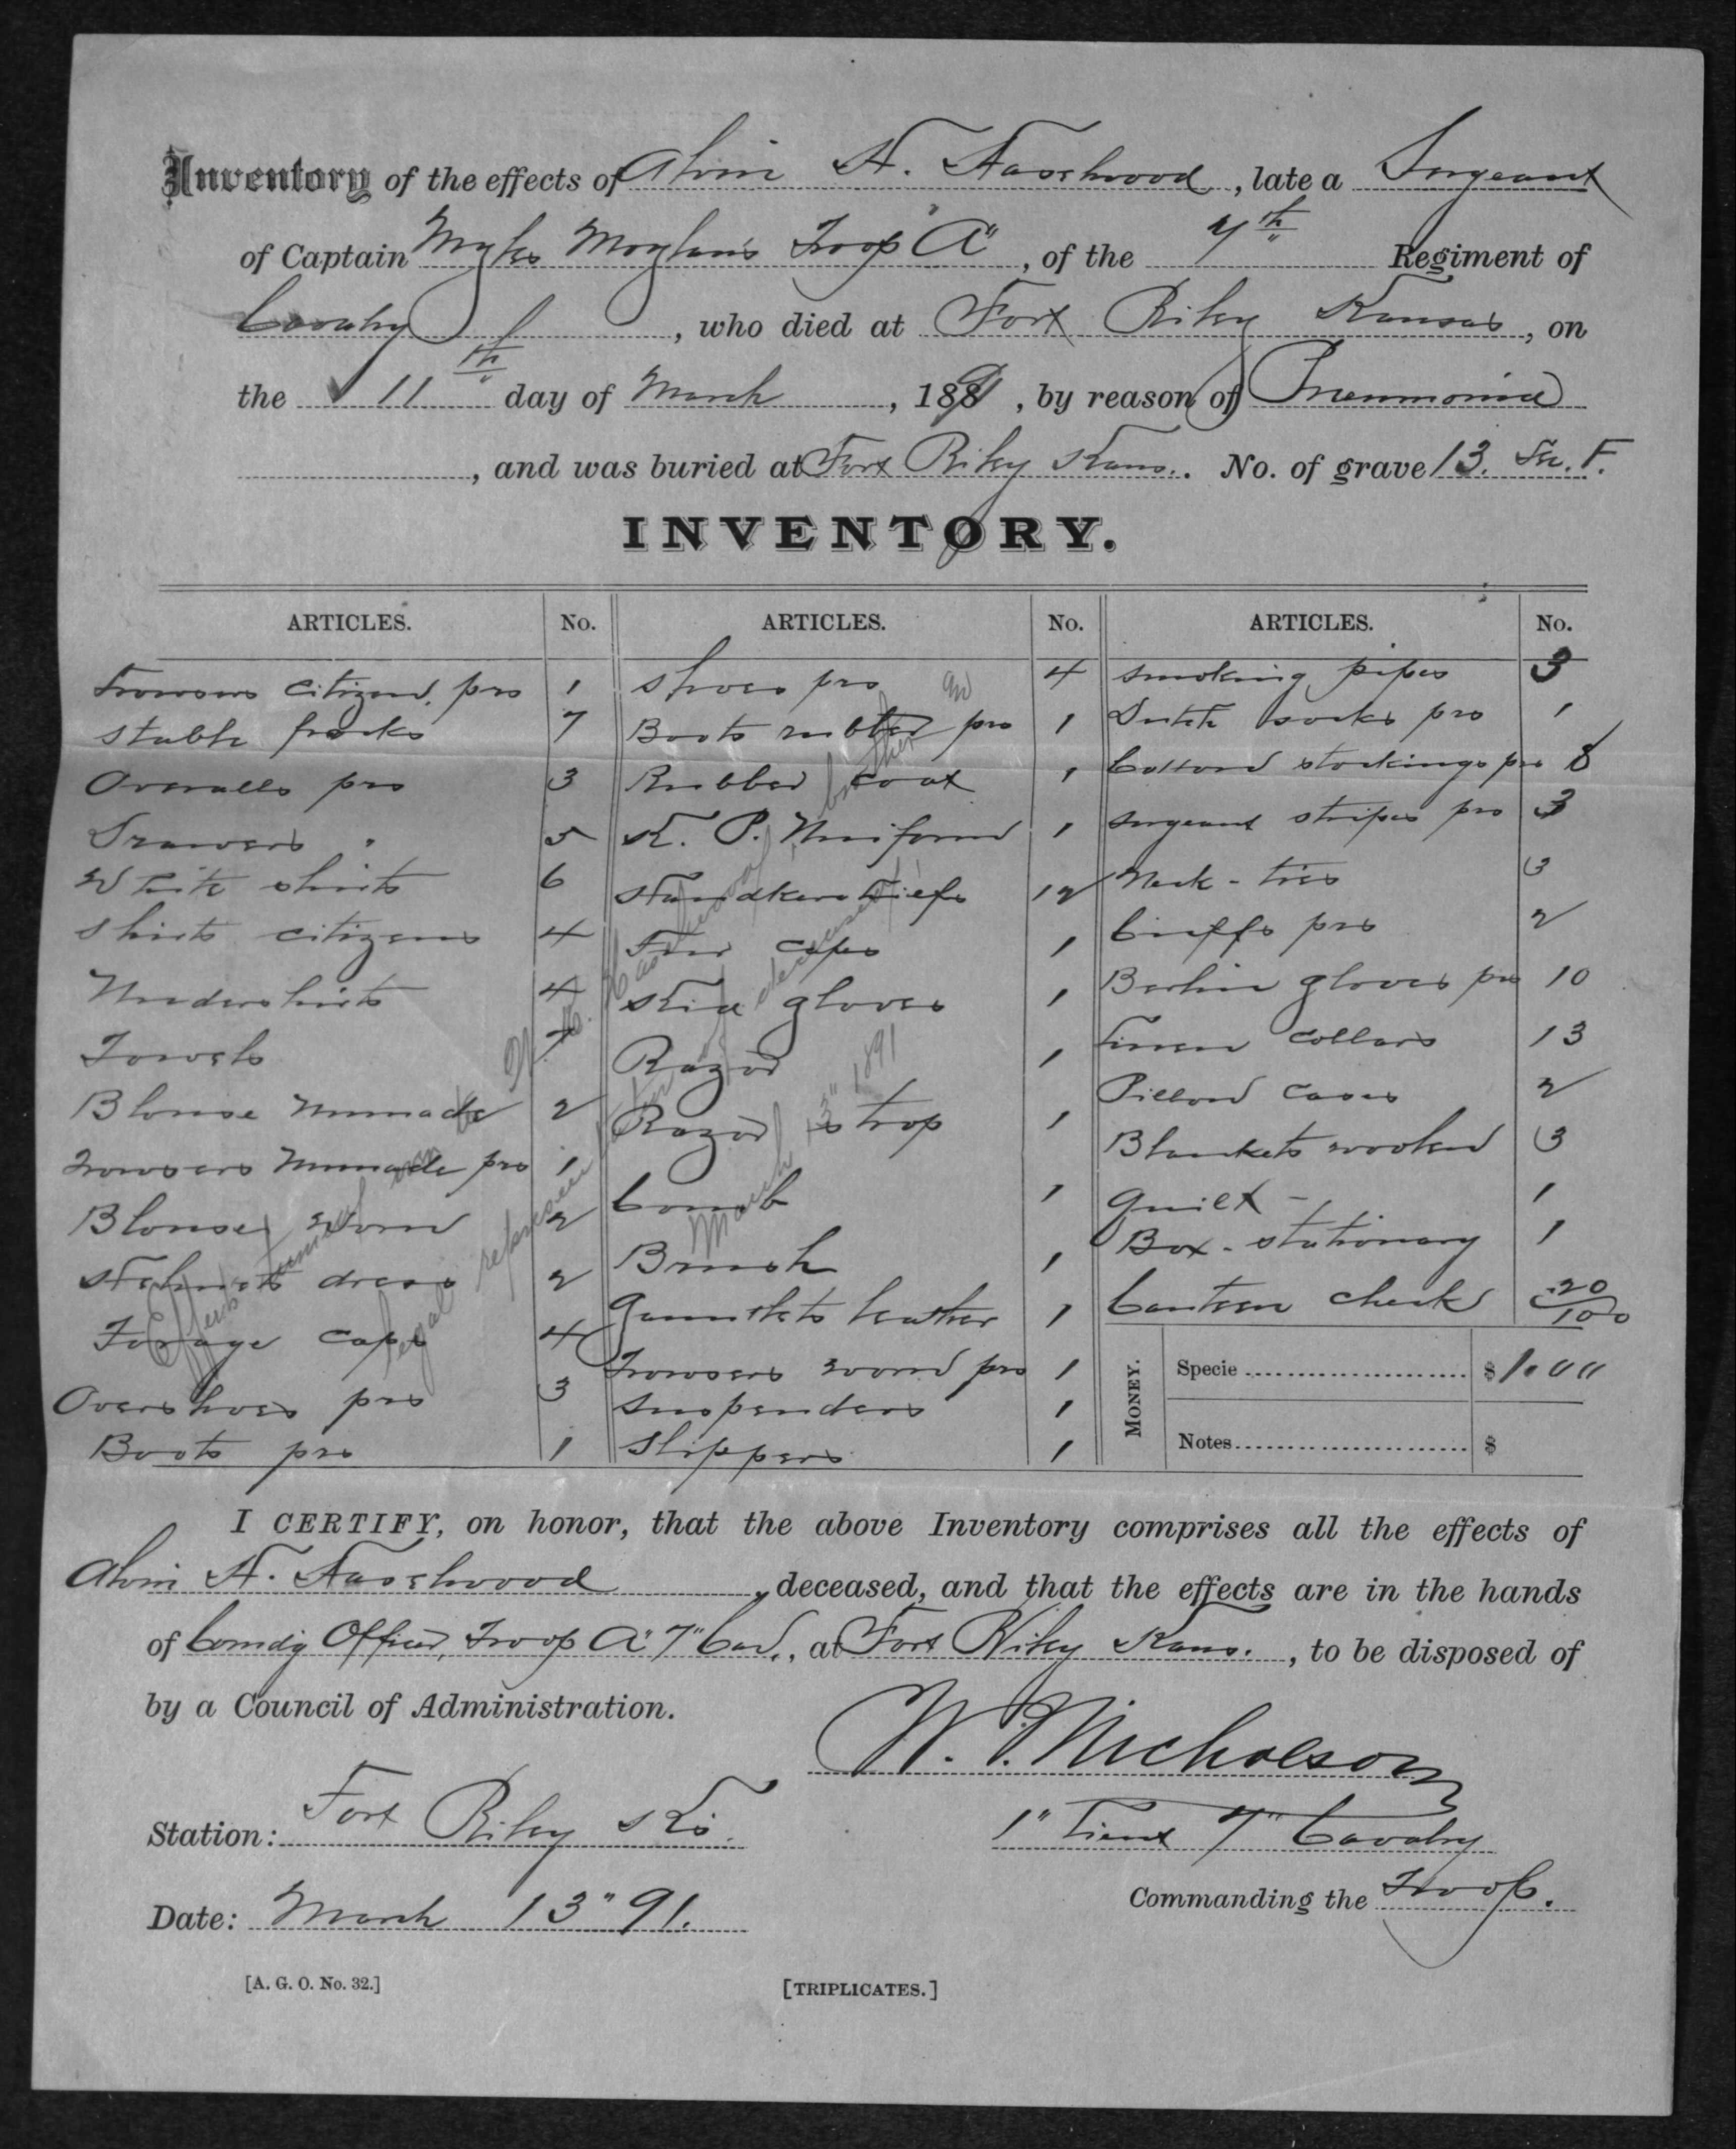 Inventory of the effects of Alvin H. Haselwood, late a Sergeant
of Captain Myles Moylan's Troop "A", of the 7th Regiment of
Cavalry, who died at Fort Riley Kansas, on
the 11th day of March, 1891, by reason of Pneumonia
, and was buried at Fort Riley Kans.. No. of grave 13. Sec. F.
INVENTORY.
ARTICLES. No. ARTICLES. No. ARTICLES. No.
Trowsers citizens, prs 1 Shoes prs 4 Smoking pipes 3
Stable frocks 7 Boots rubber prs 1 Dutch socks prs 1
Overalls prs 3 Rubber coat 1 Cottons stockings prs 8
Drawers " 5 K. P. Uniform 1 Sergeant stripes prs 3
White shirts 6 Handkerchiefs 12 Neck-ties 3
Shirts citizens 4 Fur caps 1 Cuffs prs 2
Undershirts 4 Kid gloves 1 Berlin gloves prs 10
Towels 7 Razor 1 Linen collars 13
Blouse unmade 2 Razor strop 1 Pillow cases 2
Trowsers unmade prs 1 Comb 1 Blankets woolen 3
Blouses worn 2 Brush 1 Quilt - 1
Helmets dress 2 Gauntlets leather 1 Box - stationary 1
Forage caps 4 Trowsers worn prs 1 Canteen check 20/100
Overshoes prs 3 Suspenders 1 MONEY. Specie $1.00
Boots prs 1 Slippers 1 Notes $
Effects turned over to H. Haselwood, brother and
legal representative of deceased
March 13" 1891
I CERTIFY, on honor, that the above Inventory comprises all the effects of
Alvin H. Haselwood, deceased, and that the effects are in the hands
of Comdg Officer, Troop "A" 7" Cav., at Fort Riley Kans., to be disposed of
by a Council of Administration.
W. J. Nicholson
Station: Fort Riley Ks. 1" Lieut 7" Cavalry
Date: March 13" 91. Commanding the Troop.
[A. G. O. No. 32.] [TRIPLICATES.]